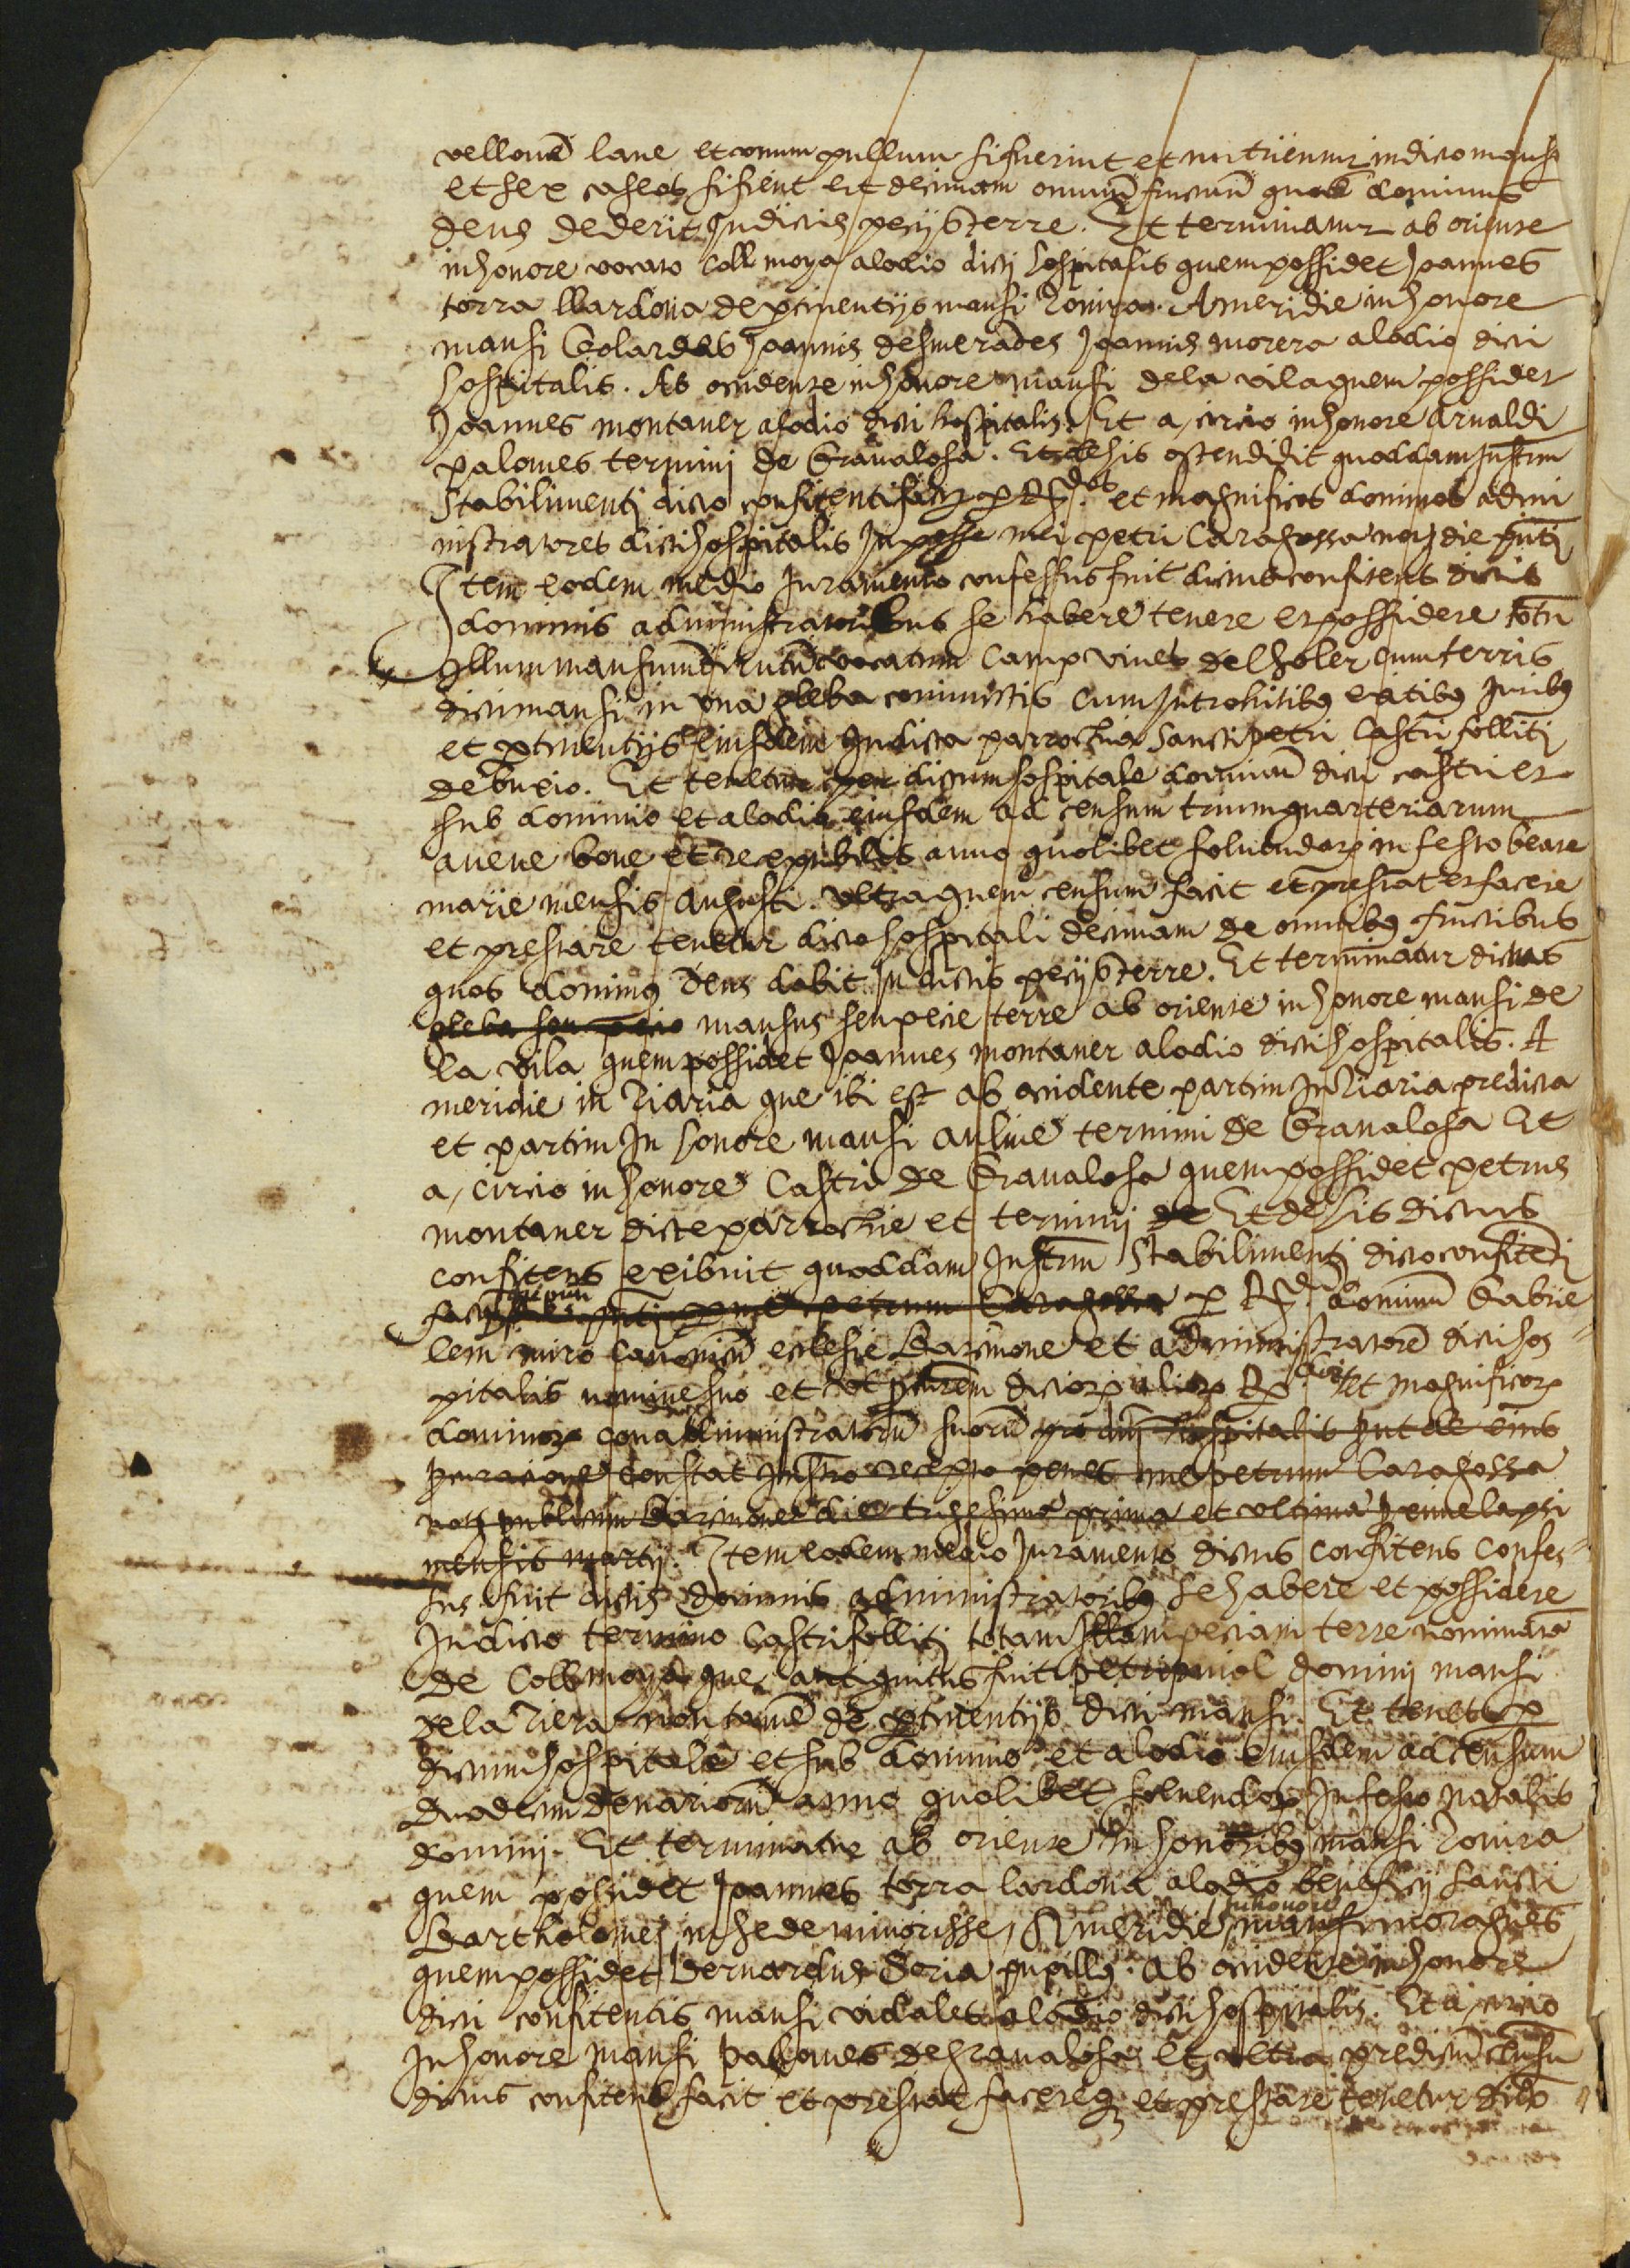 vellonẽ lane et unum pullum si fuerint et nutrientur in dicto manso
et sex caseos si fient et decimam omniũ fructuũ quos dominus
deus dederit In dictis pecijs terre. Et terminatur ab oriente
in honore vocato coll moya alodio dicti hospitalis quem possidet Joannes
torra llardona de ptinentijs mansi Rovira. A meridie in honore
mansi Joannis Joannis morera alodio dicti
hospitalis. Ab occidente in honore mansi de la vila quem possidet
Joannes montaner alodio dicti hospitalis. Et a circio in honore Arnaldi
palomes termini de Gravalosa. Et de his ostendidit quoddam Instrm
Stabilimenti dicto confitenti factũ p Rdos. et magnificos dominos admi
nistratores dicti hospitalis In posse mei petri Caragossa not die pnti
Item eodem medio Juramento confessus fuit dictus confitens dictis
dominis administratoribus se habere tenere et possidere totũ
Illum mansum dirutũ vocatum Camp vines del soler cum terris
dicti mansi in una gleba coniunctis cum Introhitibq exitibq Juribq
et ptinentijs eiusdem In dicta parrochia Sancti petri Castri folliti
de buxio. Et tenetur per dictum hospitale dominũ dicti castri et
sub dominio et alodio eiusdem ad censum trium quarteriarum
avene bone et receptibilis anno quolibet solvendar in festo beate
marie mensis Augusti. Ultra quem censum facit et prestat et facere
et prestare tenetur dicto hospitali decimam de omnibq fructibus
quos dominq deus dabit In dictis pecijs terre. Et terminatur dictus
gleba seu pecia mansus seu pecie terre ab oriente in honore mansi de
la vila quem possidet Joannes montaner alodio dicti hospitalis. A
meridie in Riaria que ibi est ab occidente partim In Riaria predicta
et partim In honore mansi Auline termini de Gravalosa Et
a, circio in honore Castri de Gravalosa quem possidet petrus
montaner dicte parrochie et termini de Et de his dictus
confitens exibuit quoddam Instrm Stabilimenti dicto confitẽti
factũ pnti p me petrum Caragossa p Rdũ. dominũ Gabrie
lem miro canonicũ ecclesie Barcinone et administratorẽ dicti hos
pitalis nomine suo et ut dictor alior Rdor et magnificor
dominor conadministratorũ suorũ pro dicti hospitalis put de eius
constat Instro recepto penes me petrum Caragossa
not publicum Barcinone die trigesima prima et ultima
mensis martij. Item eodem medio Juramento dictus confitens confes-
sus fuit dictis dominis administratoribq se habere et possidere
In dicto termino Castrifolliti totam Illam peciam terre nominatã
de Coll moya que antiquitus fuit petri domini mansi
de la Riera non tamẽ de ptinentijs dicti mansi. Et tenet p
dictum hospitale et sub dominio et alodio eiusdem ad censum
duodecim denariorũ anno quolibet solvendor In festo Natalis
domini. Et terminatur ab oriente In honoribq mansi Rovira
quem possidet Joannes torra lardona alodio beneficij Sancti
Bartholomei in sede minorisse, A meridie In honore mansi moragues
quem possidet Bernardus Soria pupillq. ab occidente in honore
dicti confitentis mansi vidalet alodio dicti hospitalis. Et a, circio
In honore mansi palomes de gravalosa Et ultra predictũ censũ
dictus confitens facit et prestat facereq et prestare tenetur dicto